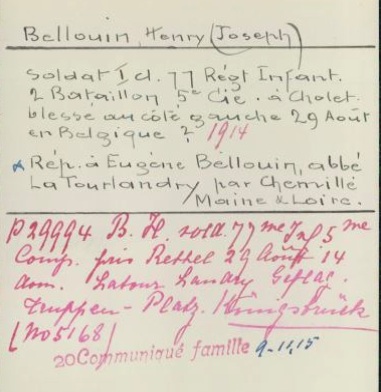 Bellouin, Henry (Joseph)
Soldat I cl. 77 Régt Infant.
2 Bataillon 5e Cie. à Cholet.
blessé au côté gauche 29 Août
en Belgique ? 1914
* Rép. à Eugène Bellouin, abbé
La Tourlandry par Chemillé
Maine & Loire.
P 29994 B. H. sold. 77me Inf 5me
Comp. pris Rethel 29 Août 14
dom. Latour Landry Gefлag.
truppen-Platz. Königsbrück
(No 5168)
20 Communiqué famille 9-11.15